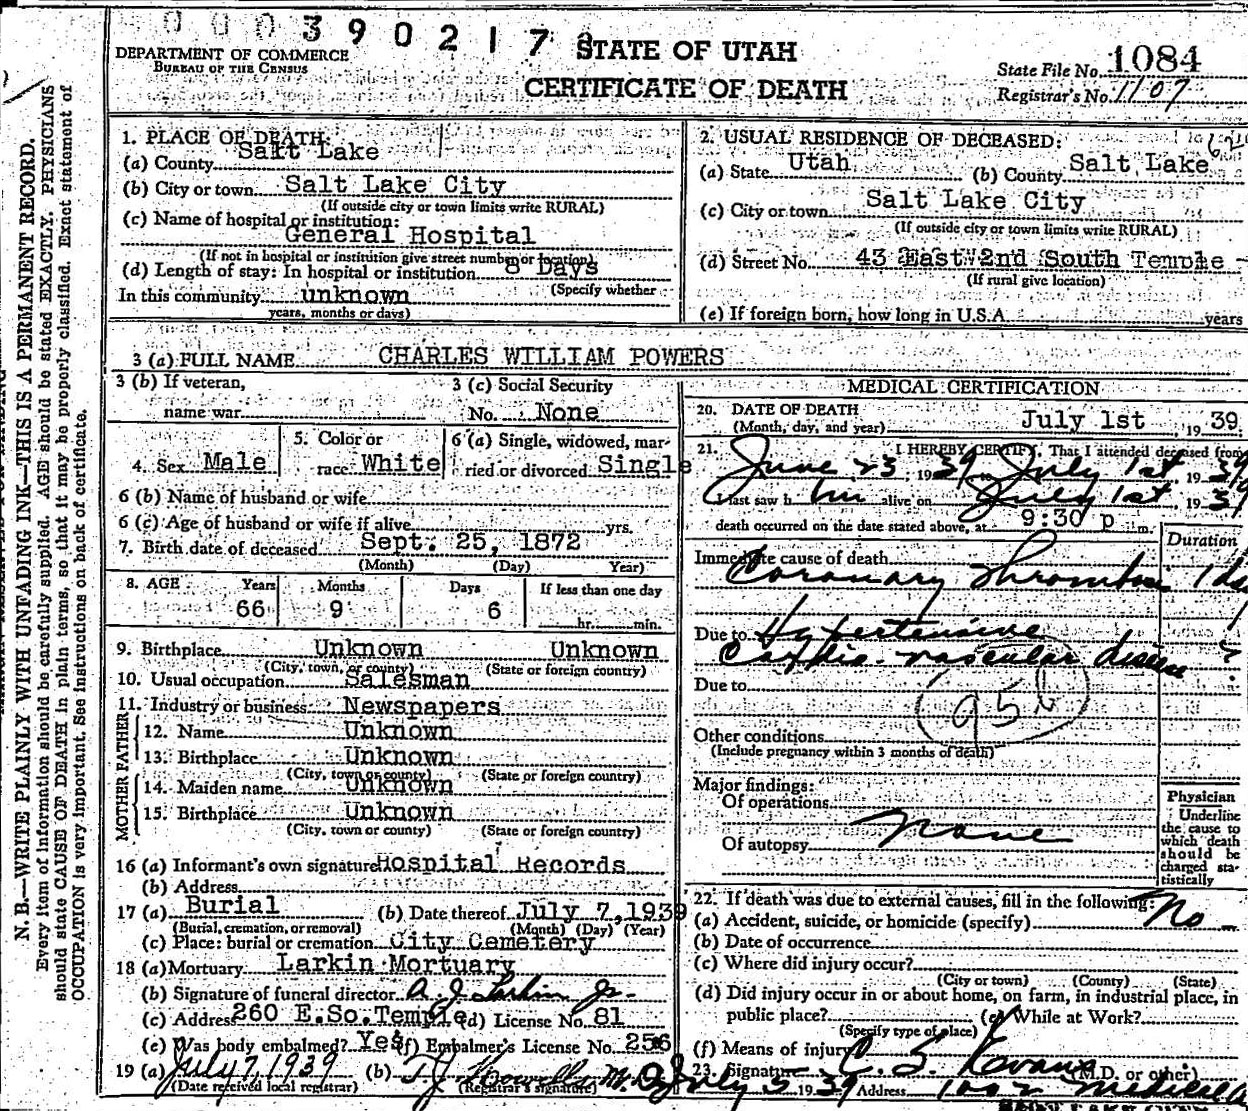 000390217
DEPARTMENT OF COMMERCE
BUREAU OF THE CENSUS
STATE OF UTAH
CERTIFICATE OF DEATH
State File No. 1084
Registrar's No. 1107
N. B.—WRITE PLAINLY WITH UNFADING INK—THIS IS A PERMANENT RECORD.
Every item of information should be carefully supplied. AGE should be stated EXACTLY. PHYSICIANS
should state CAUSE OF DEATH in plain terms, so that it may be properly classified. Exact statement of
OCCUPATION is very important. See instructions on back of certificate.
1. PLACE OF DEATH:
(a) County Salt Lake
(b) City or town Salt Lake City
(If outside city or town limits write RURAL)
(c) Name of hospital or institution:
General Hospital
(If not in hospital or institution give street number or location)
(d) Length of stay: In hospital or institution 8 Days
(Specify whether
In this community unknown
years, months or days)
2. USUAL RESIDENCE OF DECEASED:
(a) State Utah (b) County Salt Lake
(c) City or town Salt Lake City
(If outside city or town limits write RURAL)
(d) Street No. 43 East 2nd South Temple
(If rural give location)
(e) If foreign born, how long in U.S.A. years
3 (a) FULL NAME CHARLES WILLIAM POWERS
3 (b) If veteran, name war
3 (c) Social Security No. None
4. Sex Male
5. Color or race White
6 (a) Single, widowed, married or divorced Single
6 (b) Name of husband or wife
6 (c) Age of husband or wife if alive yrs.
7. Birth date of deceased Sept. 25, 1872
(Month) (Day) Year)
8. AGE Years Months Days If less than one day
66 9 6 hr. min.
9. Birthplace Unknown Unknown
(City, town, or county) (State or foreign country)
10. Usual occupation Salesman
11. Industry or business Newspapers
FATHER
12. Name Unknown
13. Birthplace Unknown
(City, town or county) (State or foreign country)
MOTHER
14. Maiden name Unknown
15. Birthplace Unknown
(City, town or county) (State or foreign country)
16 (a) Informant's own signature Hospital Records
(b) Address
17 (a) Burial (b) Date thereof July 7, 1939
(Burial, cremation, or removal) (Month) (Day) (Year)
(c) Place: burial or cremation City Cemetery
18 (a) Mortuary Larkin Mortuary
(b) Signature of funeral director A J Larkin Jr.
(c) Address 260 E.So.Temple (d) License No. 81
(e) Was body embalmed? Yes (f) Embalmer's License No. 256
19 (a) July 7, 1939 (b) T J Howells M.D.
(Date received local registrar) (Registrar's signature)
MEDICAL CERTIFICATION
20. DATE OF DEATH
(Month, day, and year) July 1st 19 39
21. I HEREBY CERTIFY, That I attended deceased from
June 23, 19 39 to July 1st 19 39
I last saw h im alive on July 1st 19 39
death occurred on the date stated above, at 9:30 p m.
Duration
Immediate cause of death
Coronary Thrombosis 1 day
Due to Hypertensive
Cardio-vascular disease ?
Due to
95 b
Other conditions
(Include pregnancy within 3 months of death)
Major findings:
Of operations
Of autopsy None
Physician
Underline
the cause to
which death
should be
charged sta-
tistically
22. If death was due to external causes, fill in the following:
(a) Accident, suicide, or homicide (specify) No
(b) Date of occurrence
(c) Where did injury occur?
(City or town) (County) (State)
(d) Did injury occur in or about home, on farm, in industrial place, in
public place? (e) While at Work?
(Specify type of place)
(f) Means of injury
23. Signature C. S. (M.D. or other)
July 5 19 39 Address